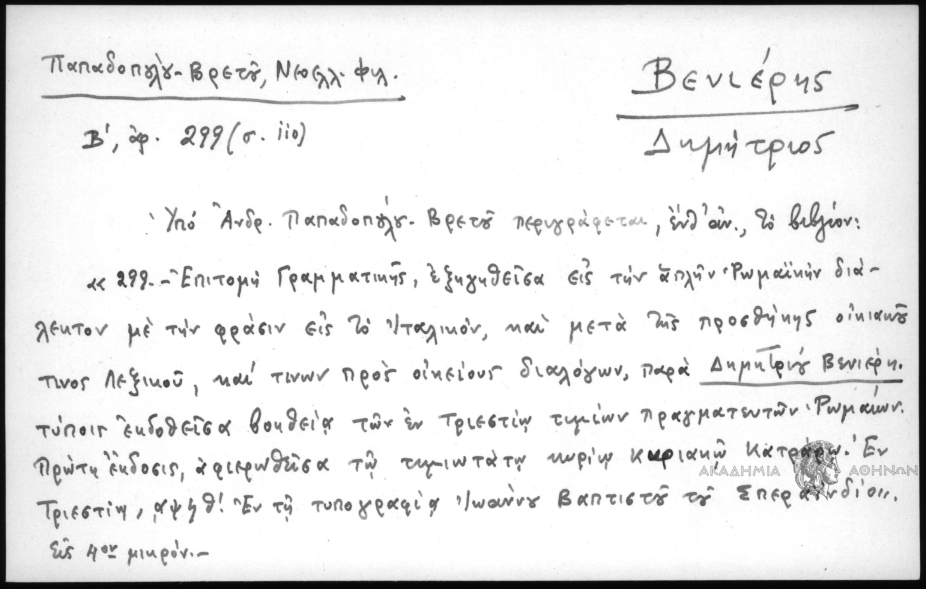 Παπαδοπούλου-Βρετοῦ, Νεοελλ. Φιλ.
Β', ἀρ. 299 (σ. 110)
Βενιέρης
Δημήτριος
Ὑπό Ἀνδρ. Παπαδοπούλου-Βρετοῦ περιγράφεται, ἔνθ' ἀν., τό βιβλίον:
« 299.- Ἐπιτομή Γραμματικῆς, ἐξηγηθεῖσα εἰς τήν ἁπλῆν Ῥωμαϊκήν διά-
λεκτον μέ τήν φράσιν εἰς τό Ἰταλικόν, καί μετά τῆς προσθήκης οἰκιακοῦ
τινος Λεξικοῦ, καί τινων πρός οἰκείους διαλόγων, παρά Δημητρίου Βενιέρη.
τύποις ἐκδοθεῖσα βοηθείᾳ τῶν ἐν Τριεστίῳ τιμίων πραγματευτῶν Ῥωμαίων.
Πρώτη ἔκδοσις, ἀφιερωθεῖσα τῷ τιμιωτάτῳ κυρίῳ Κυριακῷ Κατράρῳ. Ἐν
Τριεστίῳ, ͵αψϟθ! Ἐν τῇ τυπογραφίᾳ Ἰωάννου Βαπτιστοῦ τοῦ Σπεραινδίο".
Εἰς 4ον μικρόν.-
ΑΚΑΔΗΜΙΑ ΑΘΗΝΩΝ